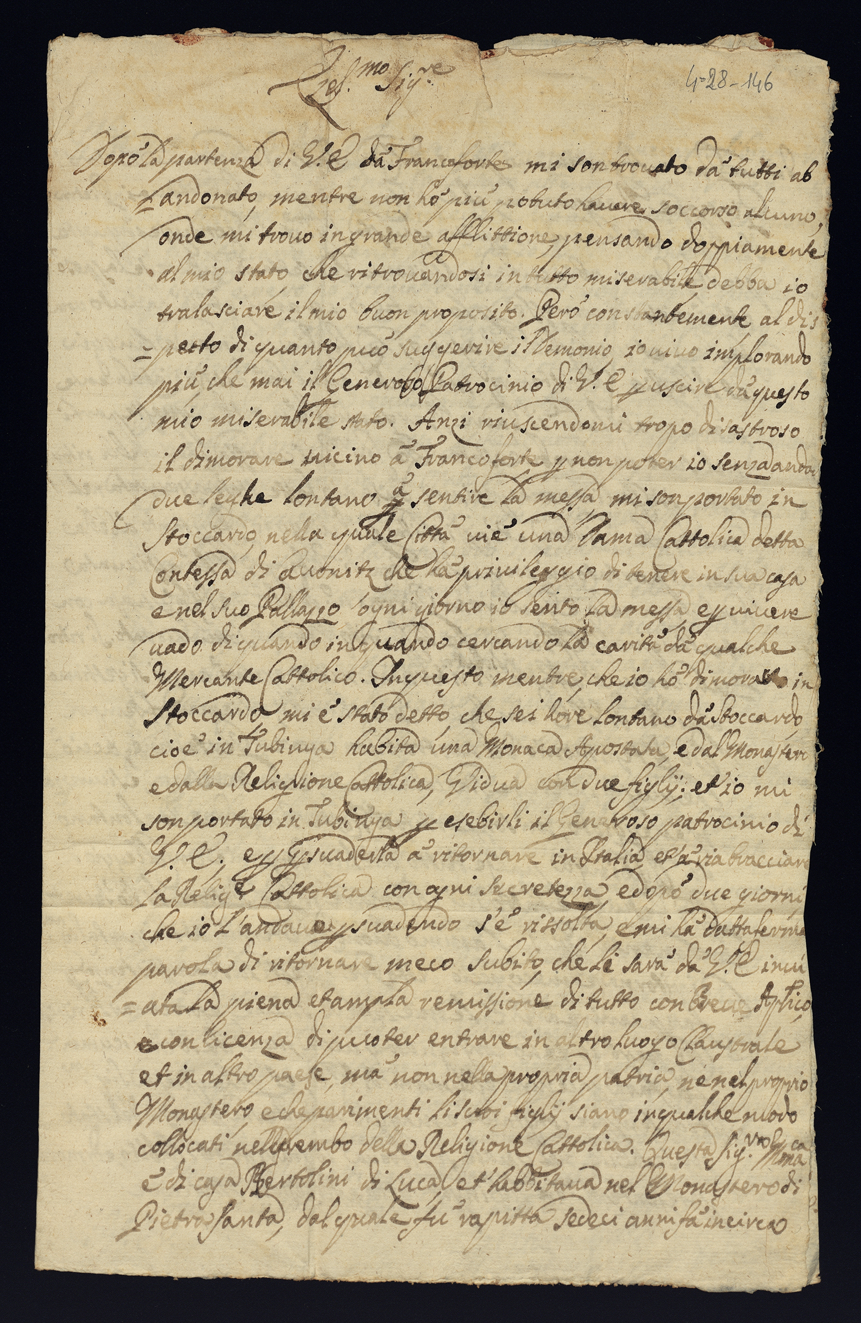 Ecc.mo Sig.re
4-28-146
Dopo la partenza di V.E. da Francoforte mi son trovato da tutti ab
=andonato, mentre non ho più potuto havere soccorso alcuno,
onde mi trovo in grande afflittione, pensando doppiamente
al mio stato, che ritrovandosi in tutto miserabile debba io
tralasciare il mio buon proposito. Però constantemente al dis
=petto di quanto può suggerire il Demonio, io vivo implorando
più che mai il Generoso Patrocinio di V.E. p uscire da questo
mio miserabile stato. Anzi riuscendomi tropo disastroso
il dimorare vicino à Francoforte p non poter io senza andar
due leghe lontano p sentire la messa mi son portato in
Stoccardo, nella quale Città vi è una Dama Cattolica detta
Contessa di che hà privileggio di tenere in sua casa
e nel suo Pallazzo ogni giorno io sento la messa, e p vivere
vado di quando in quando cercando la carità da qualche
Mercante Cattolico. In questo mentre, che io hò dimorato in
Stoccardo mi è stato detto che sei hore lontano da Stoccardo,
cioè in Tubinga habita una Monaca Apostata, e dal Monastero
e dalla Religione Cattolica, Vidua con due figlij: et io mi
son portato in Tubinga p esebirli il Generoso patrocinio di
V.E. e p psuaderla à ritornare in Italia et à riabracciare
la Relig.e Cattolica con ogni secretezza, e dopò due giorni
che io l'andave psuadendo s'è rissolta, e mi hà datta ferma
parola di ritornare meco subito, che le sarà da V.E. invi
=ata la piena et ampla remissione di tutto con Breve Ap.lico,
e con licenza di pooter entrare in altro luogo Claustrale
et in altro paese, mà non nella propria patria, ne nel proprio
Monastero, e che parimenti li suoi figlij siano in qualche modo
collocati nel grembo della Religione Cattolica. Questa Sig.ra
è di casa Bertolini di Luca, et habbitava nel Monastero di
Pietra Santa, dal quale fù rapitta sedeci anni fà incirca